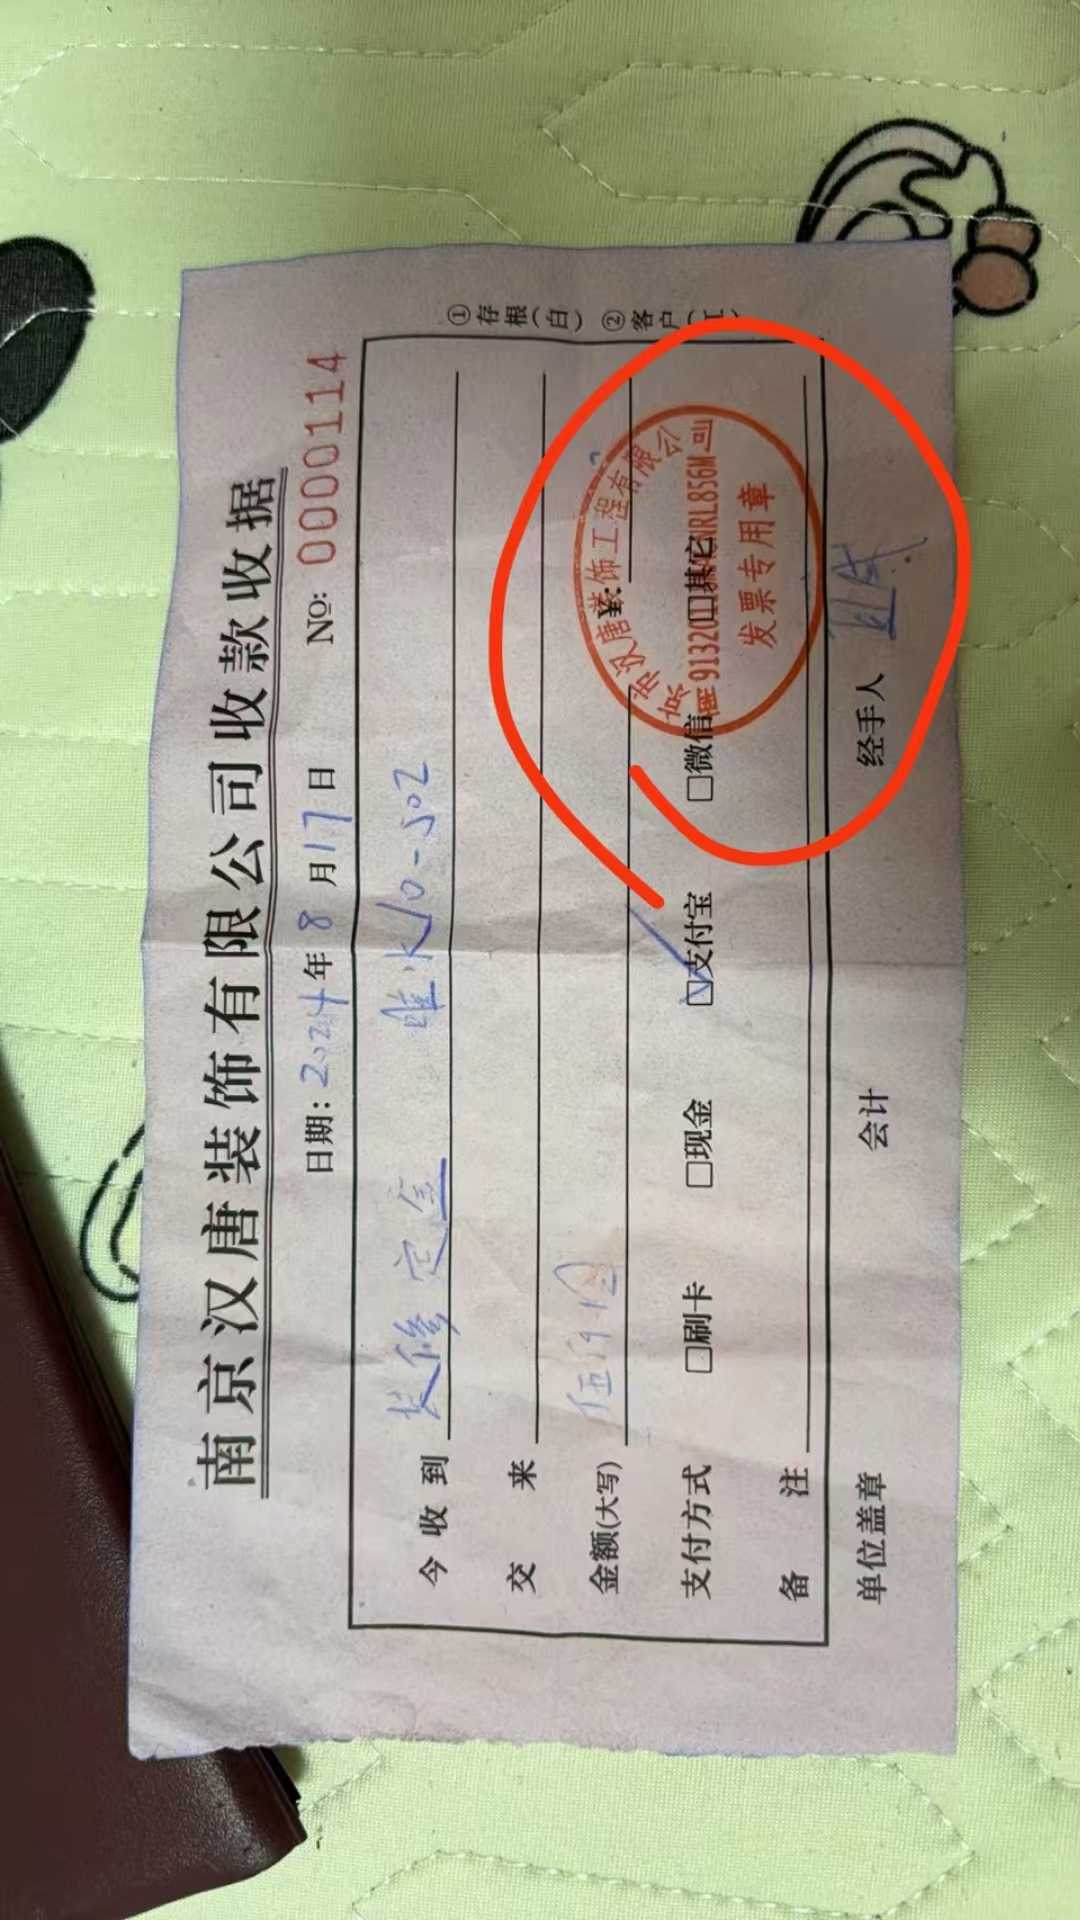 南京汉唐装饰有限公司收款收据
日期: 2024年 8 月 17 日 No: 0000114
今收到 装修定金 10-502
交来
金额(大写) 伍仟 ¥:
支付方式 □刷卡 □现金 ☑支付宝 □微信 □其它
备注
单位盖章 会计 经手人
①存根(白) ②客户(
汉唐装饰工程有限公司
发票专用章